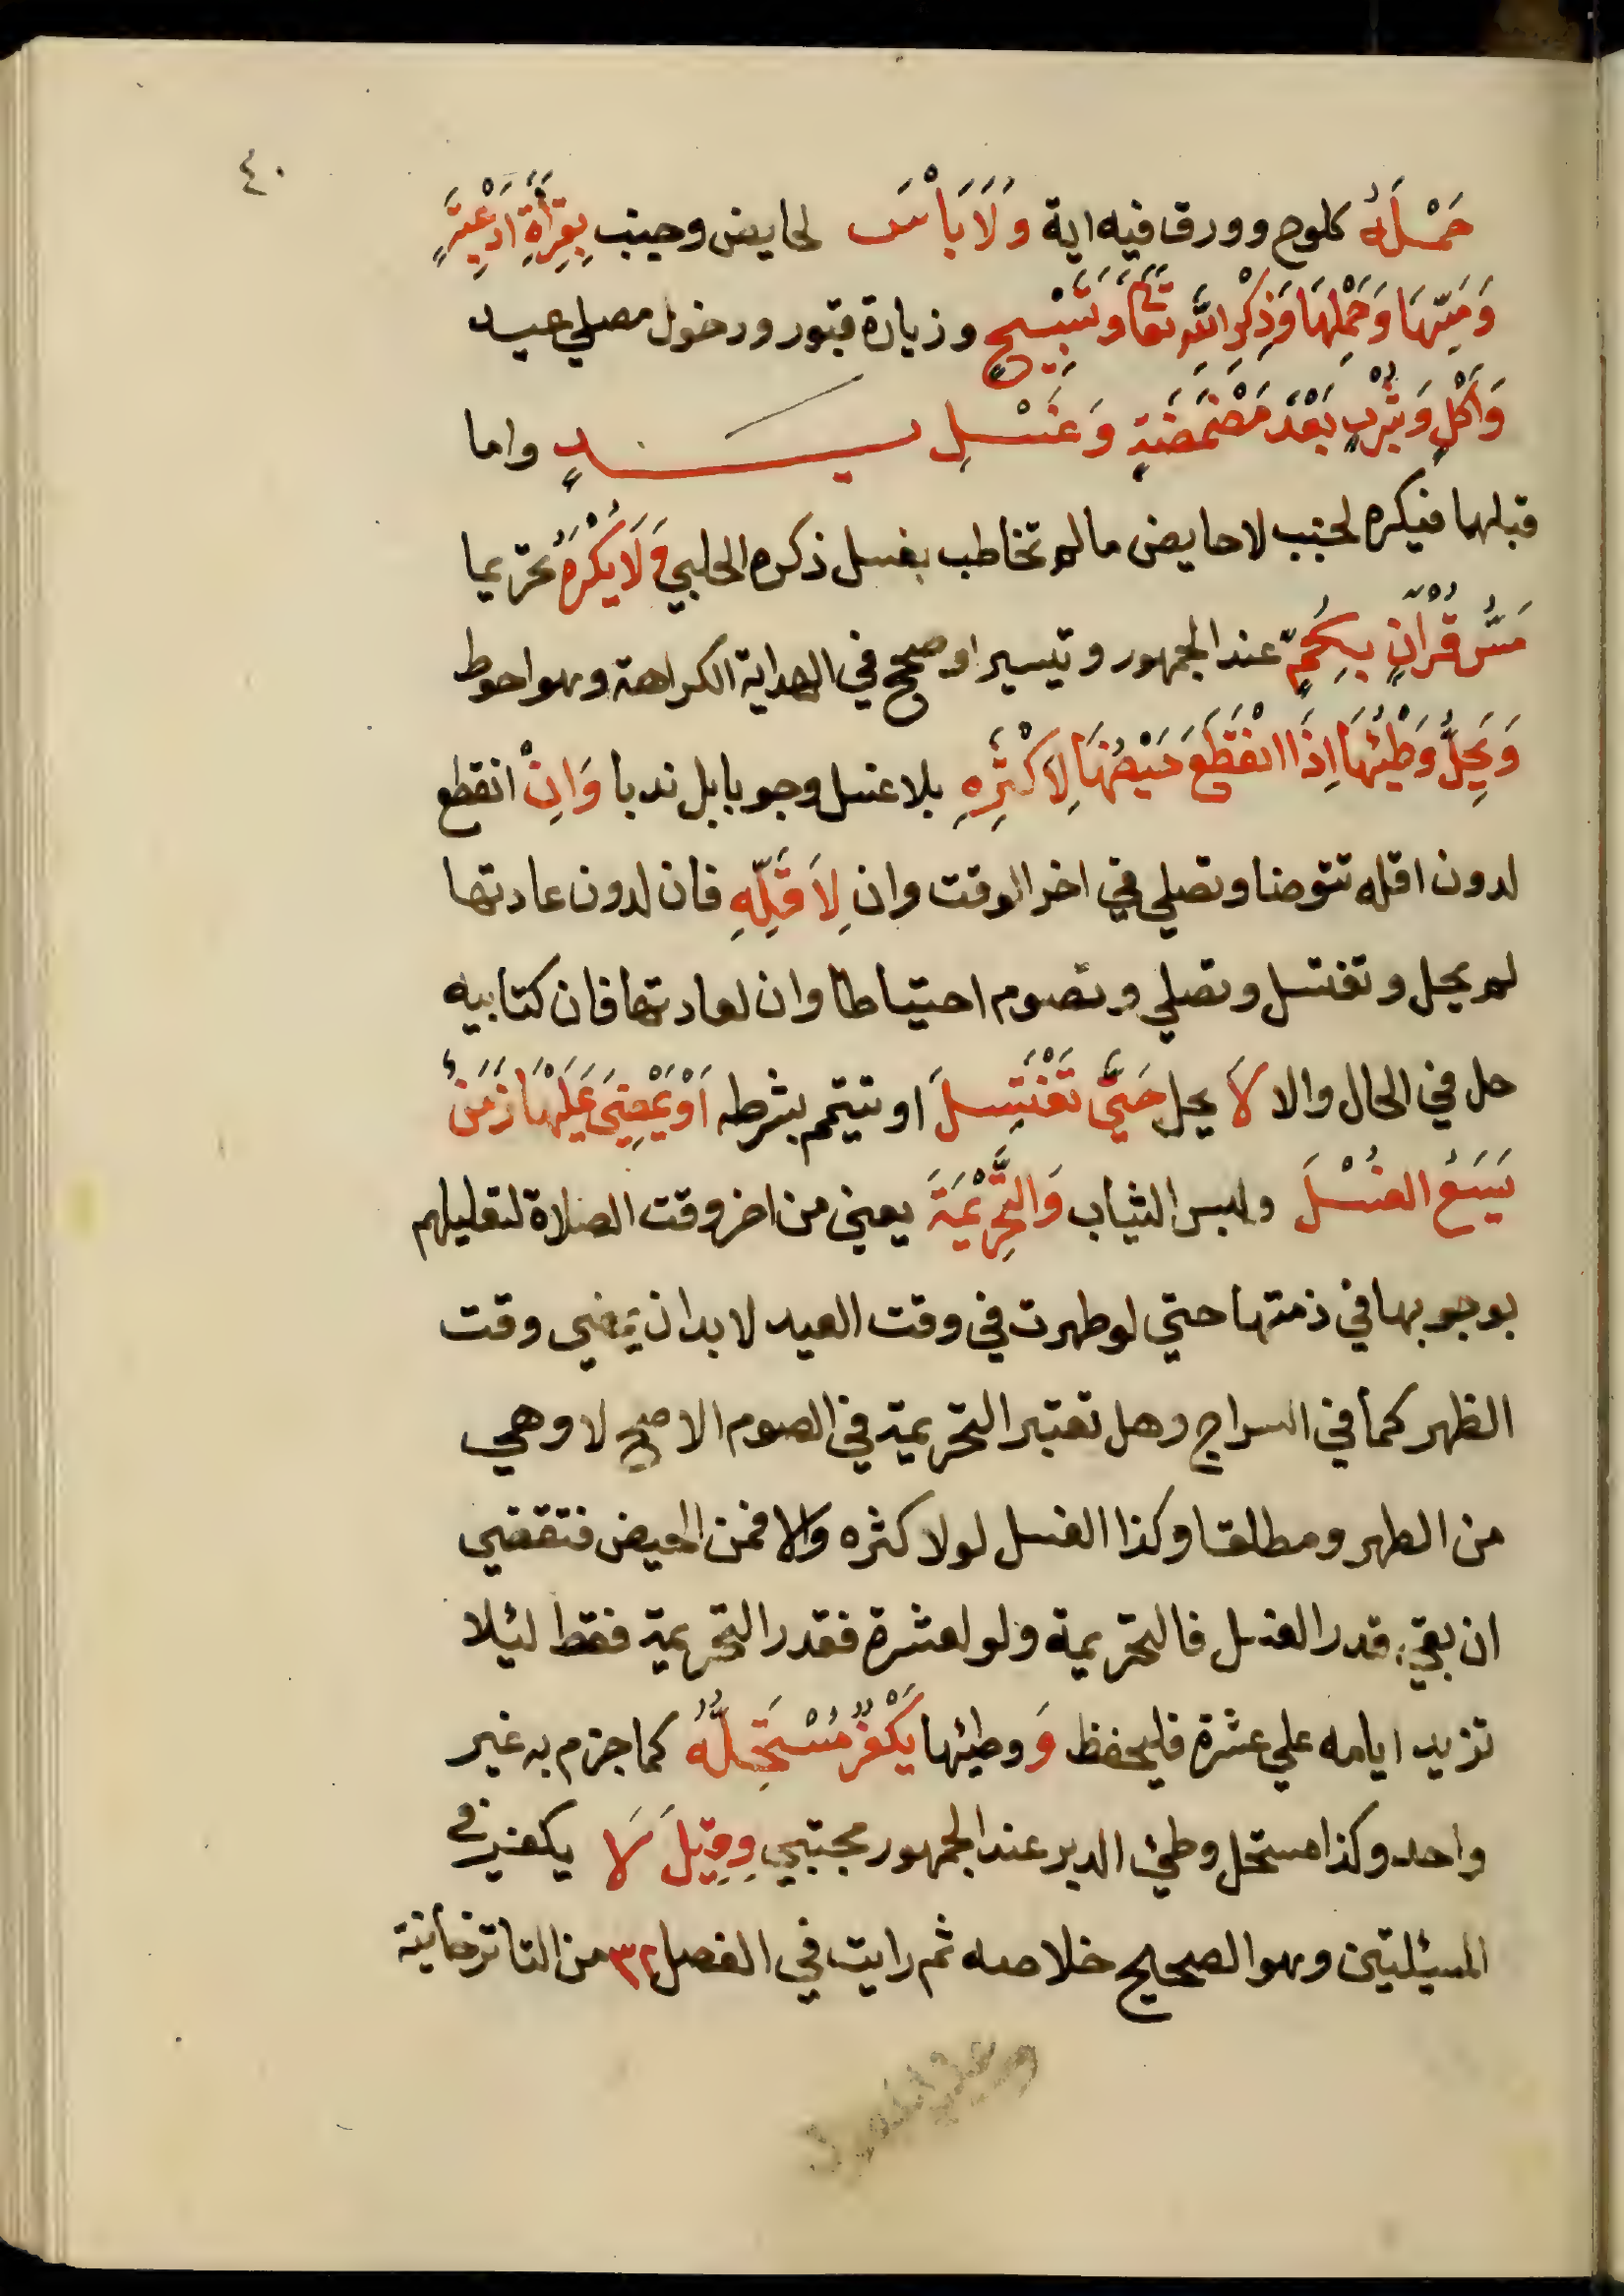 ٤٠
حَمْلُهُ كلوح وورق فيه اية وَلَا بَأْسَ لحايض وجنب بِقِرَأَةِ اَدْعِيَةٍ
وَمَسِّهَا وَحَمْلِهَا وَذِكْرِ اللّهِ تَعَا وَتَسْبِيحٍ وزيارة قبور ودخول مصلي عيد
وَاَكْلٍ وَشُرْبٍ بَعْدَ مَضْمَضَةٍ وَغَسْلِ يَدٍ واما
قبلهما فيكره لجنب لا حايض مالم تخاطب بغسل ذكره الحلبي وَلَا يُكْرَهُ تحريما
مَسُّ قُرْآنٍ بِكُمٍّ عند الجمهور وتيسيرا وصحح في الهداية الكراهة وهو احوط
وَيَحِلُّ وَطْئُهَا اِذَا انْقَطَعَ حَيْضُهَا لِاَكْثَرِهِ بلا غسل وجوبا بل ندبا وَاِنْ انقطع
لدون اقله تتوضا وتصلي في اخر الوقت وان لِاَقَلِّهِ فان لدون عادتها
لم يحل وتغتسل وتصلي وتصوم احتياطا وان لعادتها فان كتابيه
حل في الحال والا لَا يحل حَتَّى تَغْتَسِلَ او تتيمم بشرطه اَوْ يَمْضِيَ عَلَيْهَا زَمَنٌ
يَسَعُ الغُسْلَ ولبس الثياب وَالتَّحْرِيْمَةَ يعني من اخر وقت الصلاة لتعليلهم
بوجوبها في ذمتها حتي لو طهرت في وقت العيد لا بد ان يمضي وقت
الظهر كما في السراج وهل تعتبر التحريمة في الصوم الاصح لا وهي
من الطهر ومطلقا وكذا الغسل لو لاكثره والا فمن الحيض فتقضي
ان بقي قدر الغسل فالتحريمة ولو لعشرة فقدر التحريمة فقط ليئلا
تزيد ايامه علي عشرة فليحفظ وَ وطئها يَكْفُرُ مُسْتَحِلُّهُ كما جزم به غير
واحد وكذا مستحل وطئ الدبر عند الجمهور مجتبي وِقِيْلَ لَا يكفر في
المسئلتين وهو الصحيح خلاصه ثم رايت في الفصل ٣٢ من التاترخانية